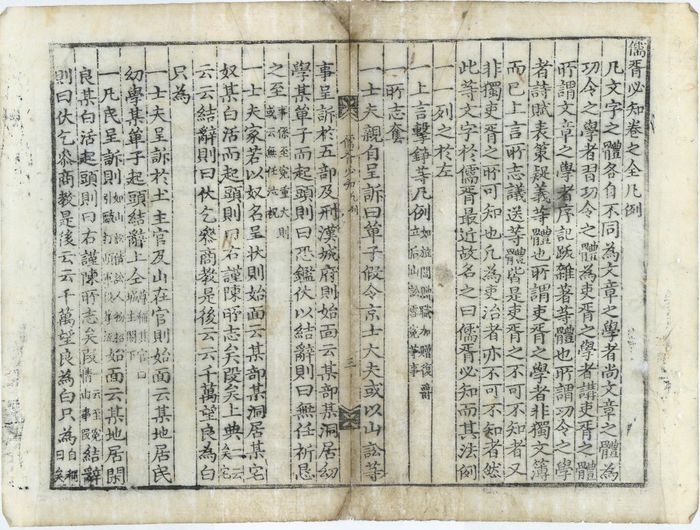 儒胥必知卷之全凡例
凡文字之體各自不同為文章之學者尚文章之體為
功令之學者習功令之體為吏胥之學者講吏胥之體
所謂文章之學者序記跋雜著等體也所謂功令之學
者詩賦表策疑義等體也所謂吏胥之學者非獨文簿
而已上言所志議送等體皆是吏胥之不可不知者又
非獨吏胥之所可知也凡為吏治者亦不可不知者然
此等文字於儒胥最近故名之曰儒胥必知而其法例
一一列之於左
一上言擊錚等凡例 如旌閭贈職加贈復爵立后山訟雪冤等事
一所志套
一士夫親自呈訴曰單子假令京士大夫或以山訟等
儒胥必知凡例 三
事呈訴於五部及刑漢城府則始面云某部某洞居幼
學某單子而起頭則曰恐鑑伏以結辭則曰無任祈恳
之至 事係至冤重大則或云無任泣祝
一士夫家若以奴名呈狀則始面云某部某洞居某宅
奴某白活而起頭則曰右謹陳所志矣段矣上典 一云矣宅
云云結辭則曰伏乞參商教是後云云千萬望良為白
只為
一士夫呈訴於土主官及山在官則始面云某地居民
幼學某單子起頭結辭上仝 稱其官曰城主閤下
一凡民呈訴則 如山訟債訟人物招引毆打 始面云某地居閑
良某白活起頭則曰右謹陳所志矣段 結辭
則曰伏乞參商教是後云云千萬望良為白只為 自稱曰矣